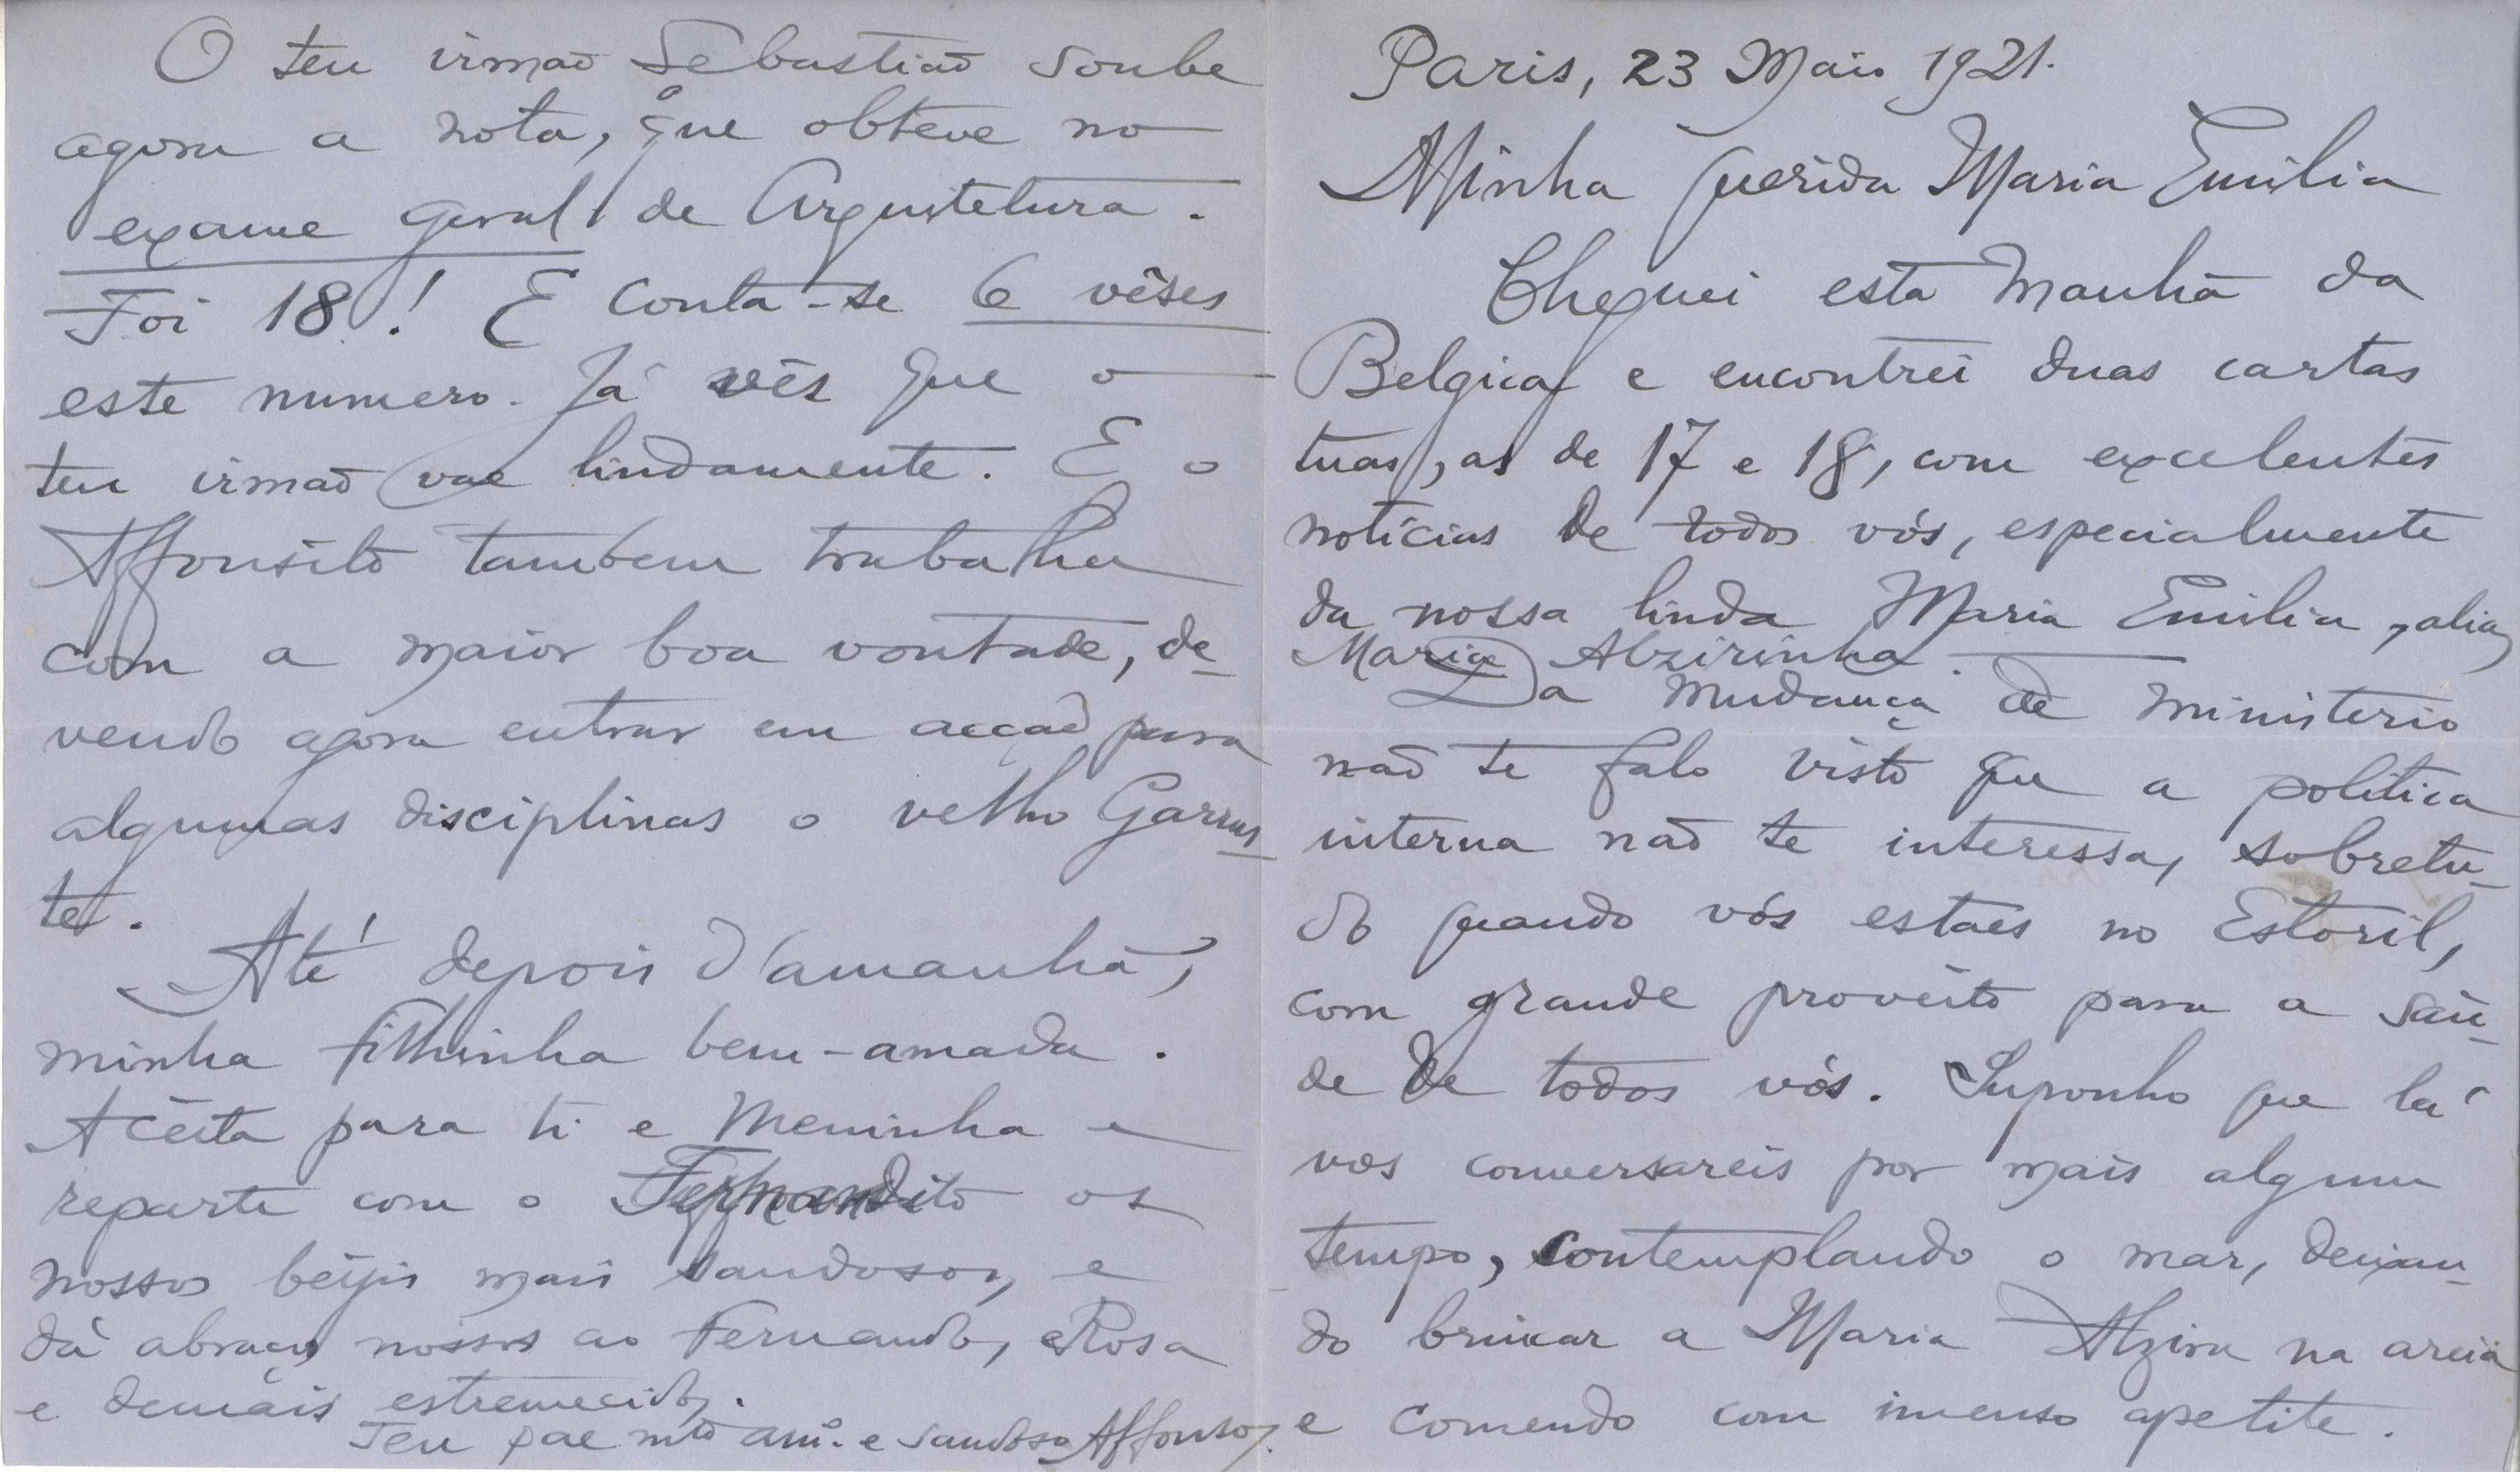 Paris, 23 Maio 1921.
Minha querida Maria Emilia
Cheguei esta manhã da
Belgica e encontrei duas cartas
tuas, as de 17 e 18, com excelentes
notícias de todos vós, especialmente
da nossa linda Maria Emilia, alias
Maria Alzirinha.
Da mudança de ministerio
não te falo visto que a politica
interna não te interessa, sobretu-
do quando vós estaes no Estoril,
com grande proveito para a saú-
de de todos vós. Suponho que lá
vos conversareis por mais algum
tempo, contemplando o mar, deixan-
do brincar a Maria Alzira na areia
e comendo com imenso apetite.
O teu irmão Sebastião soube
agora a nota, que obteve no
exame geral de Arquitetura.
Foi 18! E conta-se 6 vêses
este numero. Já vês que o
teu irmão vae lindamente. E o
Affonsito tambem trabalha
com a maior boa vontade, de-
vendo agora entrar em acção para
algumas disciplinas o velho Garrus-
te.
Até depois d'amanhã,
minha filhinha bem-amada.
Acêita para ti e Meninha e
reparte com o Fernandito os
nossos beijos mais saudosos, e
dá abraços nossos ao Fernando, Rosa
e demais estremecidos.
Teu pae mto amo. e saudoso Affonso.